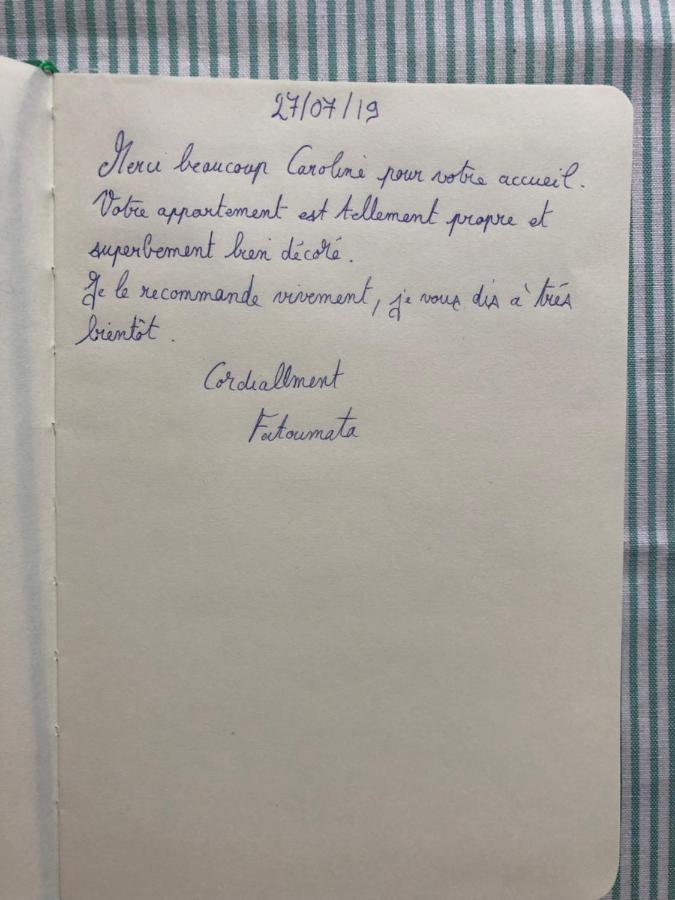 27/07/19
Merci beaucoup Caroline pour votre accueil.
Votre appartement est tellement propre et
superbement bien décoré.
Je le recommande vivement, je vous dis à trés
bientôt.
Cordiallment
Fatoumata